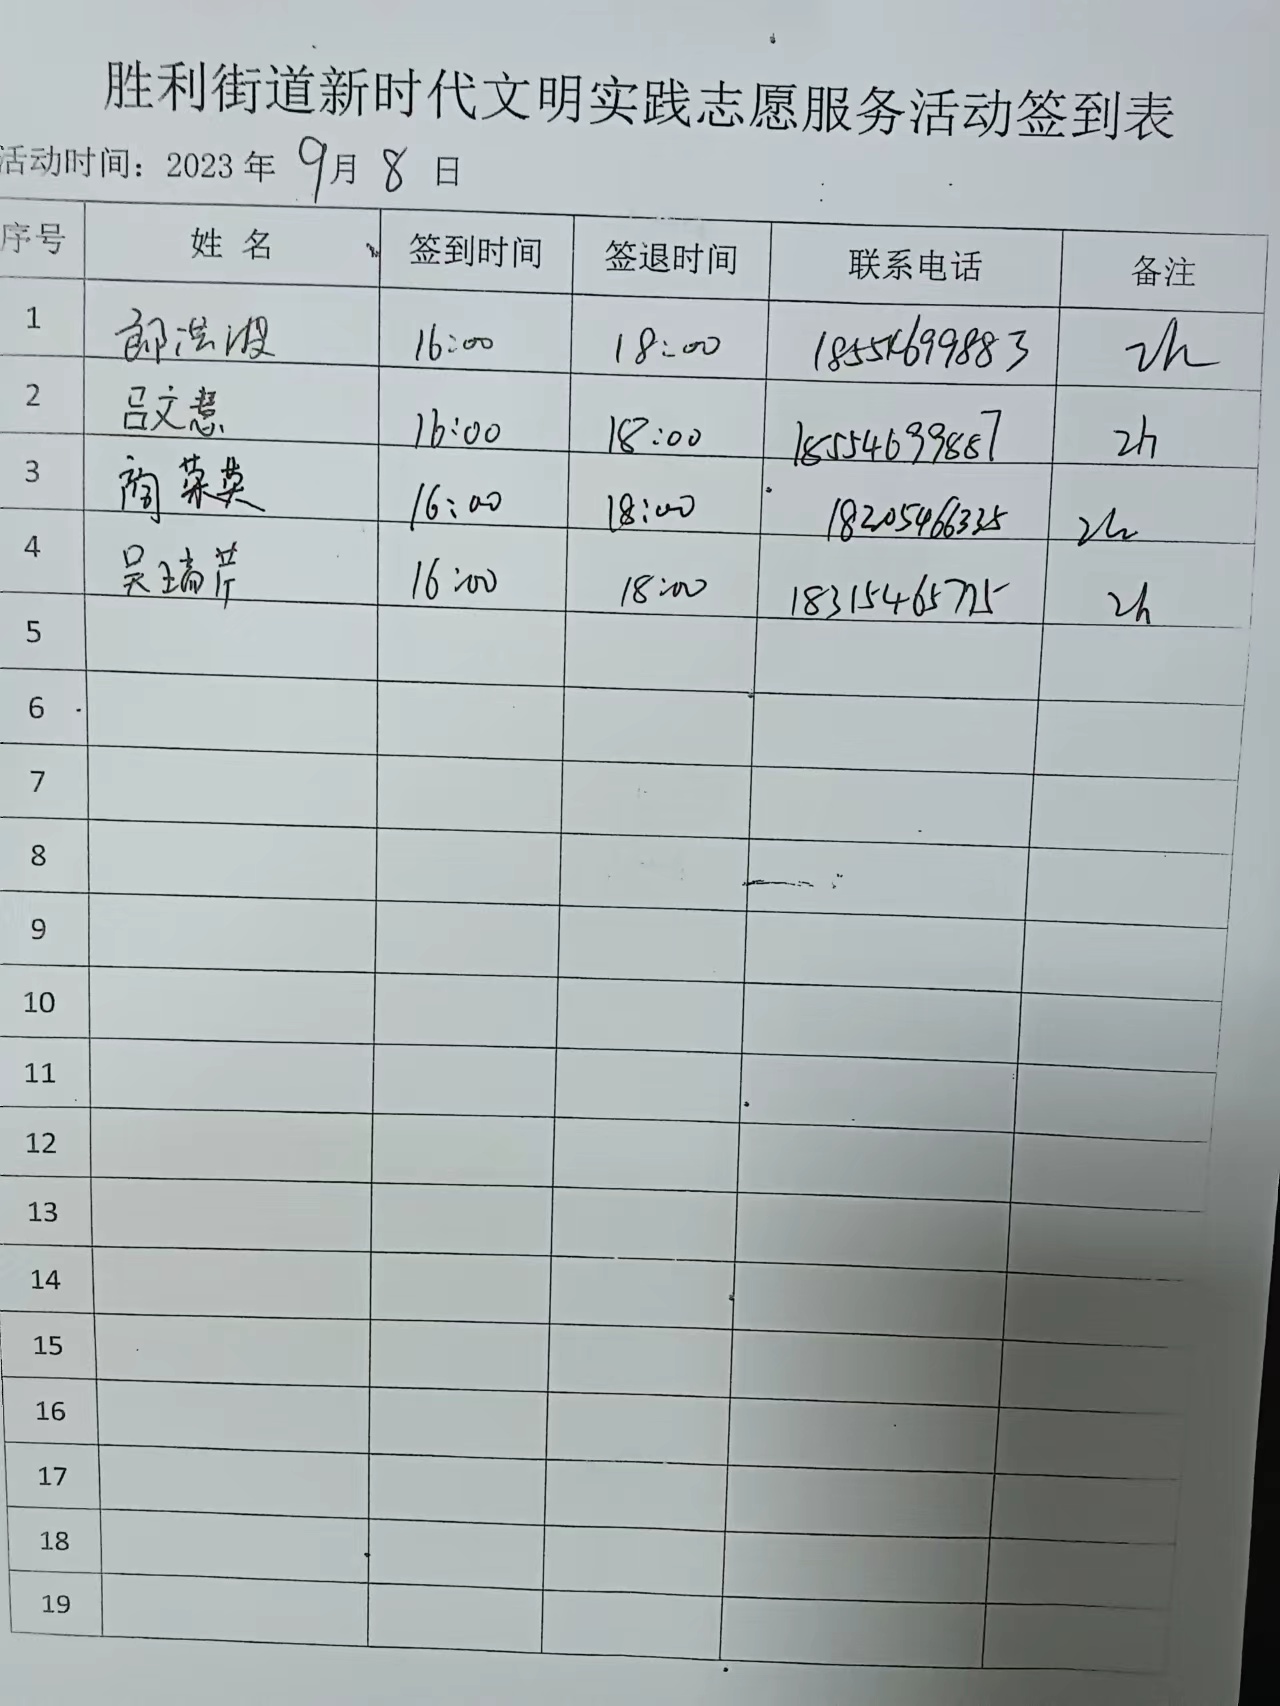 胜利街道新时代文明实践志愿服务活动签到表
活动时间：2023年 9月 8 日
序号 姓 名 签到时间 签退时间 联系电话 备注
1 郎洪波 16:00 18:00 2h
2 吕文慧 16:00 18:00 18554699887 2h
3 16:00 18:00 18205466335 2h
4 吴瑞芹 16:00 18:00 18315465715 2h
5
6
7
8
9
10
11
12
13
14
15
16
17
18
19